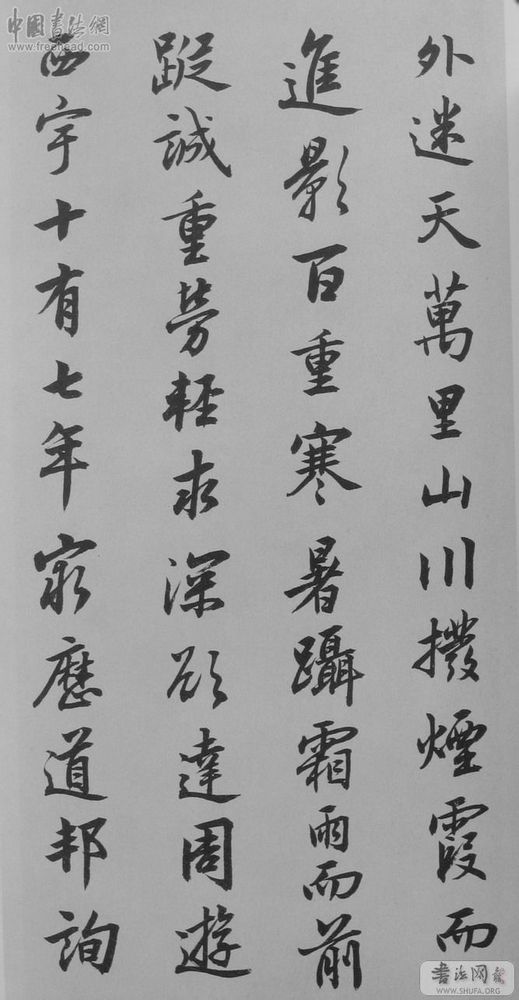 中國書法網
www.freehead.com
外迷天萬里山川撥煙霞而
進影百重寒暑躡霜雨而前
蹤誠重勞輕求深願達周遊
西宇十有七年窮歷道邦詢
書法网
WWW.SHUFA.ORG